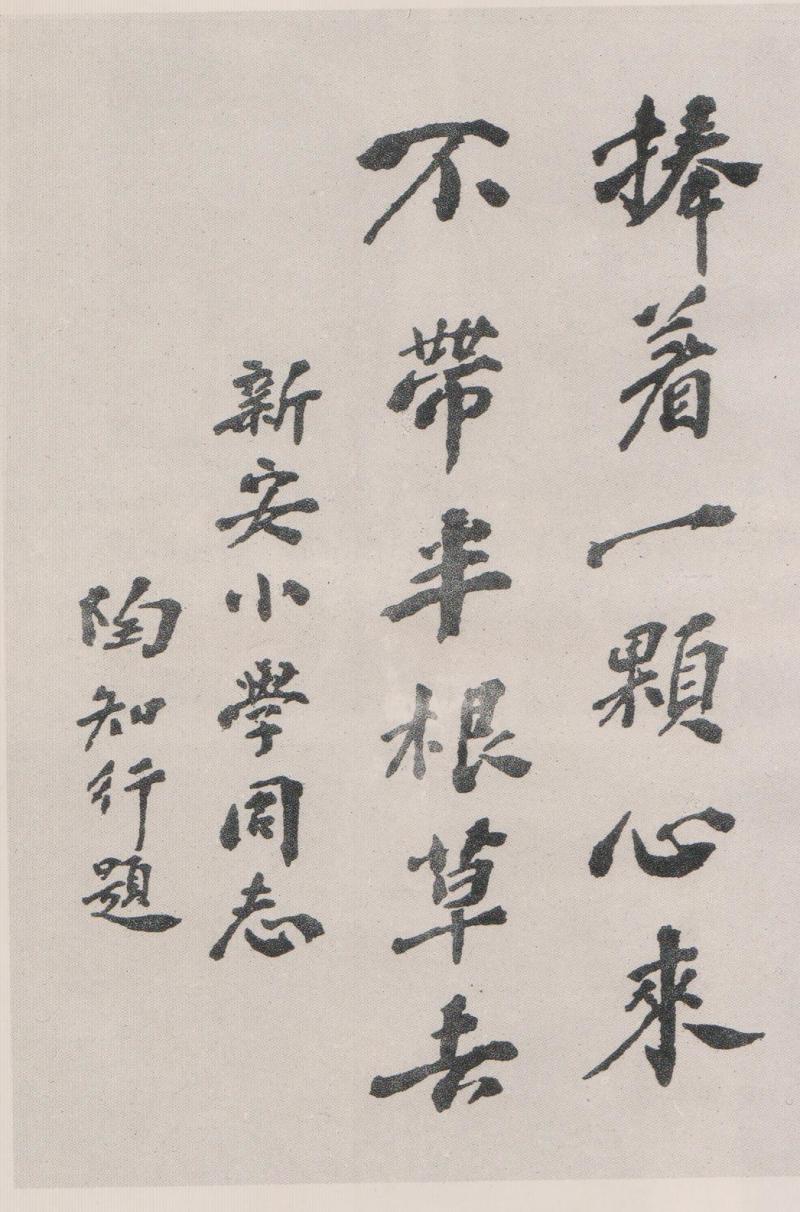 捧着一顆心來
不帶半根草去
新安小學同志
陶知行題